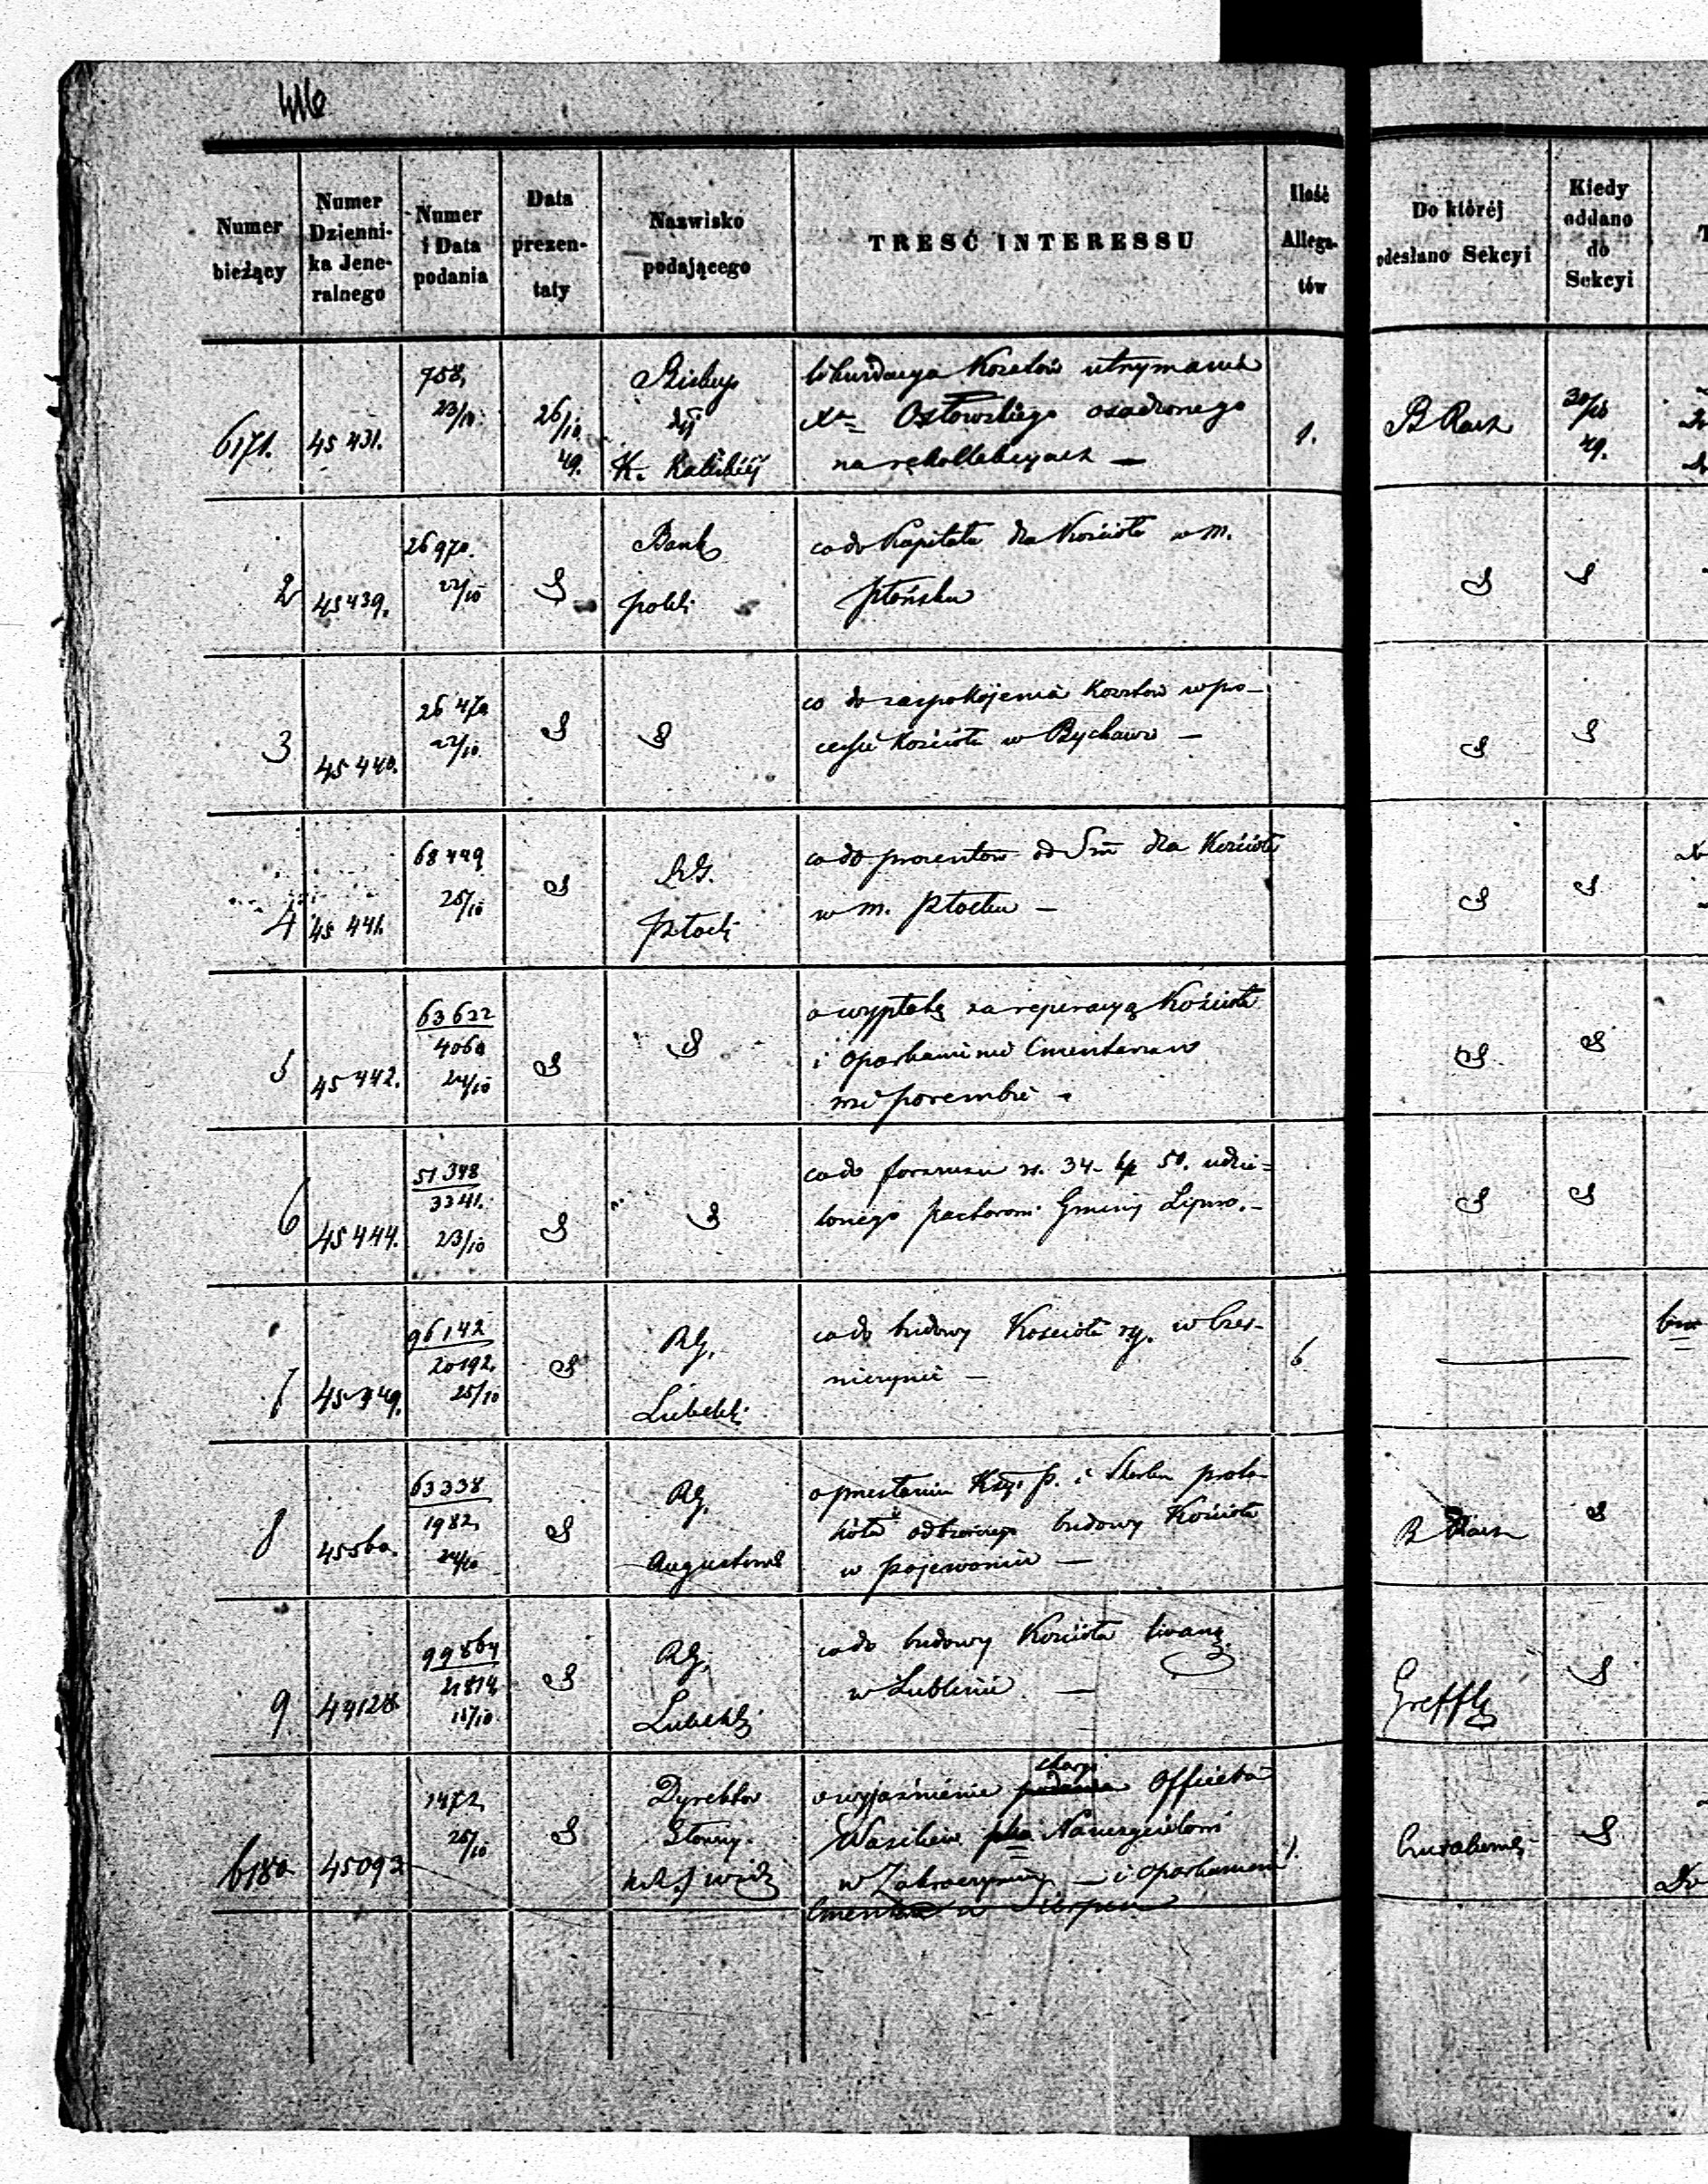 416
Numer bieżący
Numer Dzienni-ka Jene-ralnego
Numer i Data podania
Data prezen-taty
Nazwisko podającego
TRESĆ INTERESSU
Ilość Allega-tów
Do któréj odesłano Sekcyi
Kiedy oddano do Sekcyi
6171.
45 431.
758,
23/10.
26/10
49.
Biskup
K. Kaliskiéj
likwidacya Kosztów utrzymania
Xa Ostowskiego osadzonego
na rekollekcyach —
1.
B Rach
30/10
49.
2
45439.
26970.
22/10
S
Bank
polski
co do Kapitału dla Kościoła w m.
Płońsku
S
S
3
45 440.
26 470
22/10
S
S
co do zaspokojenia Kosztów w pro-
cessie Kościoła w Bychawie —
S
S
4
45 441.
68 449
25/10
S
RG.
Płocki
co do procentów od Sm dla Kościoła
w m. Płocku —
S
S
5
45 442.
63 622
4060
24/10
S
S
o wypłatę za reperacyą Kościoła
i oparkanienie Cmentarza w
wsi Porembie -
S
S
6
45 444.
51 348
3341.
23/10
S
S
co do forszusu rs. 34. kp 50. udzie=
lonego pastorowi Gminy Lipno. -
S
S
7
45 449.
96142
20192.
25/10
S
RG.
Lubelski
co do budowy Kościoła w Czes-
nieryni —
6
8
45560.
63338
1982,
24/10
S
RG.
Augustows
o przesłaniu i Skarbu proto-
kółu odbiorczego budowy Kościoła
w Pojewoniu —
B Rach
S
9
44128
99864
21814
15/10.
S
RG.
Lubelski
co do budowy Kościoła Ewang.
w Lublinie —
Greffly
S
6180
45093
1472,
25/10
S
Dyrektor
Główny
o wyjaśnienie
Officera
Wasiliew
w Zakroczymiu — i oparkanieni
Cmentarza w Sierpcu
1.
S